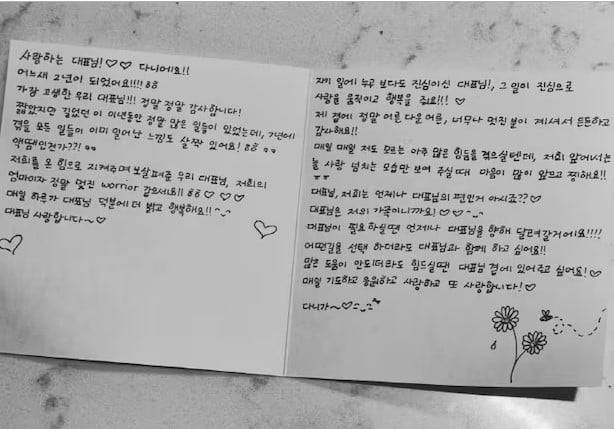 사랑하는 대표님!♡♡ 다니에요!!
어느새 2년이 되었어요!!!! 88
가장 고생한 우리 대표님!!! 정말 정말 감사합니다!
짧았지만 길었던 이 이년동안 정말 많은 일들이 있었는데, 7년에
겪을 모든 일들이 이미 일어난 느낌도 살짝 있어요! 88
액땜인건가??!
저희를 온 힘으로 지켜주며 보살펴준 우리 대표님, 저희의
엄마이자 정말 멋진 worrior 같으세요!! 88 ♡♡♡
매일 하루가 대표님 덕분에 더 밝고 행복해요!! ^_^
대표님 사랑합니다~♡
자기 일에 누구 보다도 진심이신 대표님!, 그 일이 진심으로
사람을 움직이고 행복을 줘요!!! ♡
제 곁에 정말 어른 다운 어른, 너무나 멋진 분이 계셔서 든든하고
감사해요!!
매일 매일 저도 모르는 아주 많은 힘듦을 겪으실텐데, 저희 앞에서는
늘 사랑 넘치는 모습만 보여 주실때 마음이 많이 아프고 찡해요!!
대표님, 저희는 언제나 대표님의 편인거 아시죠?? ♡
대표님은 저의 가족이니까요! ♡♡ ^_^
대표님이 필요하실땐 언제나 대표님을 향해 달려갈거에요!!!!
어떤길을 선택 하더라도 대표님과 함께 하고 싶어요!!
많은 도움이 안되더라도 힘드실땐 대표님 곁에 있어주고 싶어요!♡
매일 기도하고 응원하고 사랑하고 또 사랑합니다!♡
다니가~♡